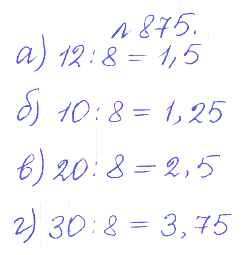 №875.
а) 12:8 = 1,5
б) 10:8 = 1,25
в) 20:8 = 2,5
г) 30:8 = 3,75